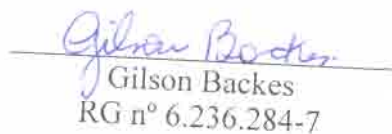 Gilson Backes
Gilson Backes
RG nº 6.236.284-7